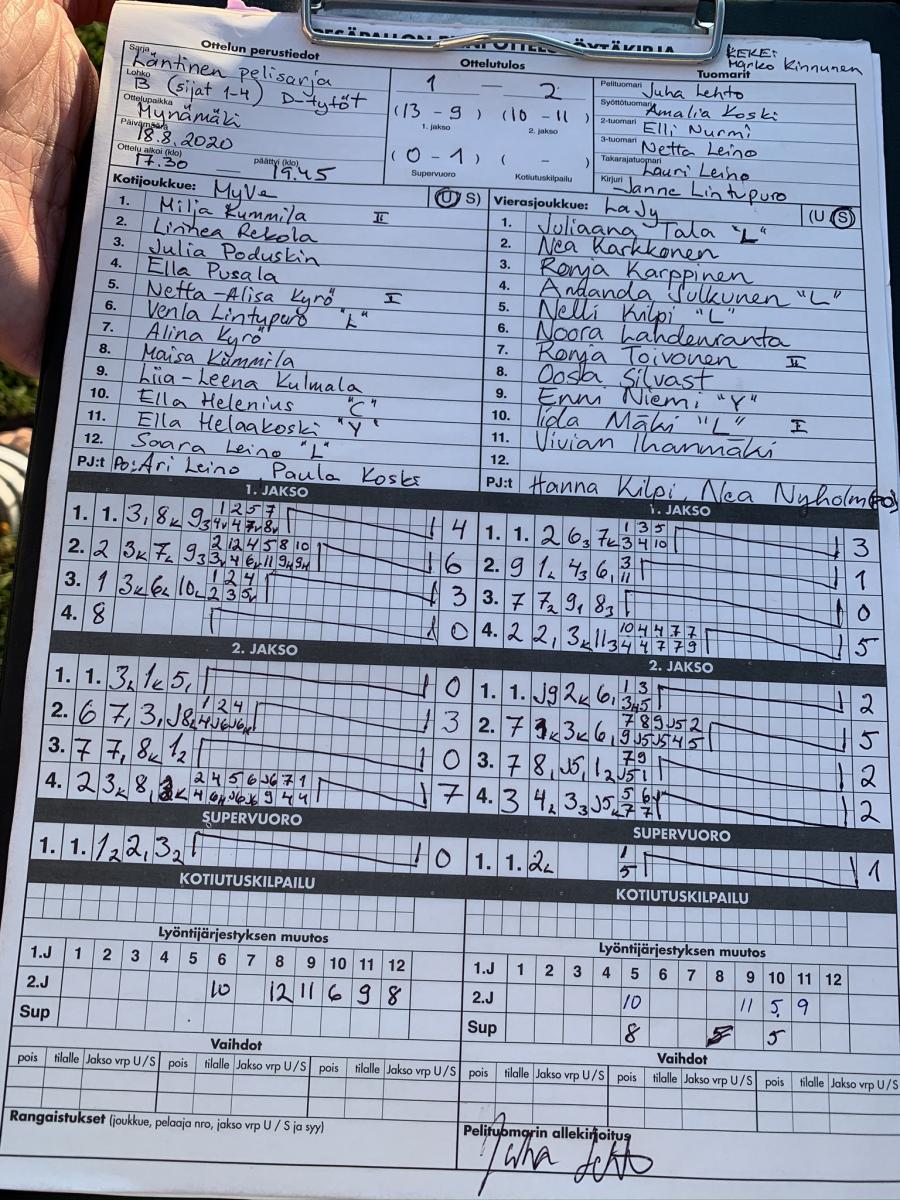 KEKE:
Marko Kinnunen
Ottelun perustiedot
Sarja
Läntinen pelisarja
Lohko
B (sijat 1-4) D-tytöt
Ottelupaikka
Mynämäki
Päivämäärä
18.8.2020
Ottelu alkoi (klo) päättyi (klo)
17.30 — 19.45
Ottelutulos
1 — 2
(13 - 9) (10 - 11)
1. jakso 2. jakso
(0 - 1) ( - )
Supervuoro Kotiutuskilpailu
Tuomarit
Pelituomari Juha Lehto
Syöttötuomari Amalia Koski
2-tuomari Elli Nurmi
3-tuomari Netta Leino
Takarajatuomari Lauri Leino
Kirjuri Janne Lintupuro
Kotijoukkue: MyVe (U S)
1. Milja Kummila II
2. Linnea Rekola
3. Julia Poduskin
4. Ella Pusala
5. Netta-Alisa Kyrö I
6. Venla Lintupuro "L"
7. Alina Kyrö
8. Maisa Kummila
9. Liia-Leena Kulmala
10. Ella Helenius "C"
11. Ella Helaakoski "Y"
12. Saara Leino "L"
PJ:t Po: Ari Leino Paula Koski
Vierasjoukkue: LaJy (U S)
1. Juliaana Tala "L"
2. Nea Karkkonen
3. Ronja Karppinen
4. Amanda Julkunen "L"
5. Nelli Kilpi "L"
6. Noora Lahdenranta
7. Ronja Toivonen II
8. Oosa Silvast
9. Enni Niemi "Y"
10. Iida Mäki "L" I
11. Vivian Ihanmäki
12.
PJ:t Hanna Kilpi, Nea Nyholm (po)
1. JAKSO
1. 1. 3, 8k 93 4
2. 2 3k 7k 93 6
3. 1 3k 6k 10k 3
4. 8 0
1. JAKSO
1. 1. 2 63 7k 3
2. 9 12 43 6, 1
3. 7 72 91 83 0
4. 2 2, 3k 113 5
2. JAKSO
1. 1. 32 1k 5, 0
2. 6 7, 3, J8k 3
3. 7 7, 8k 12 0
4. 2 3k 8, 7
2. JAKSO
1. 1. J9 2k 6, 2
2. 7 3k 6, 5
3. 7 8, J5, 12 2
4. 3 42 33 J5k 2
SUPERVUORO
1. 1. 12 2, 32 0
SUPERVUORO
1. 1. 22 1
KOTIUTUSKILPAILU
KOTIUTUSKILPAILU
Lyöntijärjestyksen muutos
1.J 1 2 3 4 5 6 7 8 9 10 11 12
2.J 10 12 11 6 9 8
Sup
Lyöntijärjestyksen muutos
1.J 1 2 3 4 5 6 7 8 9 10 11 12
2.J 10 11 5 9
Sup 8 5
Vaihdot
pois tilalle Jakso vrp U/S pois tilalle Jakso vrp U/S pois tilalle Jakso vrp U/S
Vaihdot
pois tilalle Jakso vrp U/S pois tilalle Jakso vrp U/S pois tilalle Jakso vrp U/S
Rangaistukset (joukkue, pelaaja nro, jakso vrp U / S ja syy)
Pelituomarin allekirjoitus
Juha Lehto